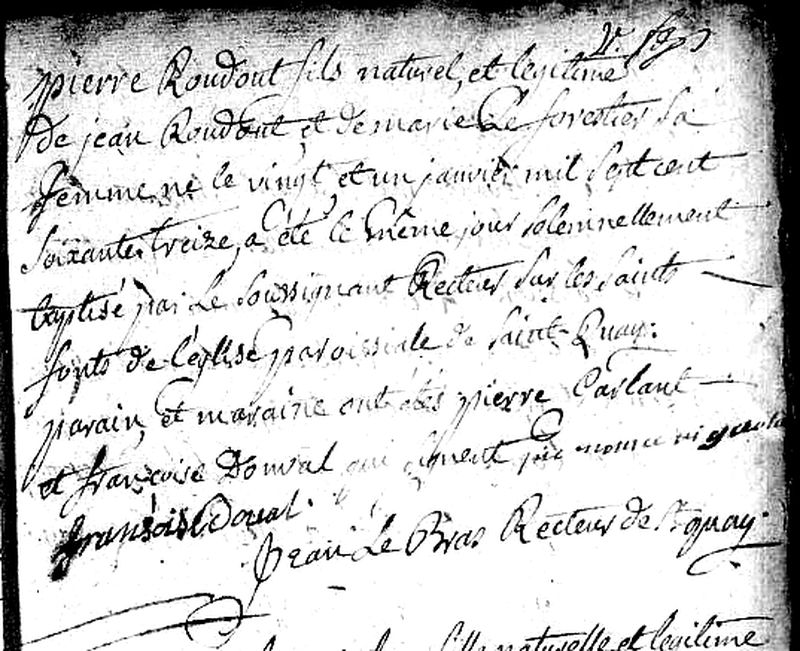 pierre Roudout fils naturel, et legitime
de jean Roudout et de marie Le forestier sa
femme né le vingt et un janvier mil sept cent
soixante treize, a été le même jour solemnellement
baptisé par Le soussignant Recteur sur les saints
fonts de l'église paroissiale de saint-Quay:
parain, et maraine ont étés pierre Carlant
et françoise Donval qui signent
fransoise Doual.
Jean Le Bras Recteur de St quay.
fille naturelle et legitime